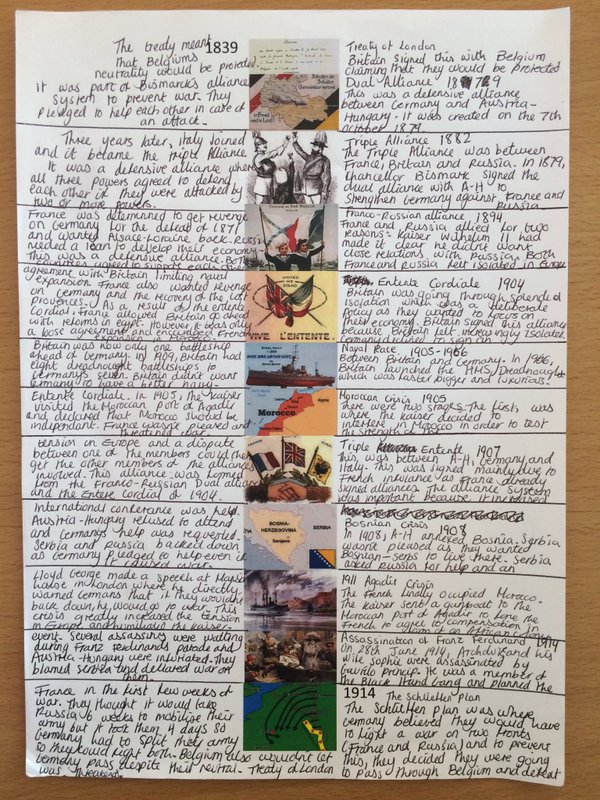 The treaty meant
that Belgium's
neutrality would be protected.
It was part of Bismarck's alliance
system to prevent war. They
pledged to help each other in case of
an attack.
1839
Treaty of London
Britain signed this with Belgium
claiming that they would be protected
Dual Alliance 1879
This was a defensive alliance
between Germany and Austria-
Hungary. It was created on the 7th
October 1879
Three years later, Italy joined
and it became the triple Alliance.
It was a defensive alliance where
all three powers agreed to defend
each other if they were attacked by
two or more powers.
Triple Alliance 1882
The Triple Alliance was between
France, Britain and Russia. In 1879,
Chancellor Bismark signed the
dual alliance with A-H to
strengthen Germany against France and
Russia
France was determined to get revenge
on Germany for the defeat of 1871
and wanted Alsace-Loraine back. Russia
needed a loan to develop their economy
This was a defensive alliance. Both
countries agreed to support each other
Franco-Russian alliance 1894
France and Russia allied for two
reasons - Kaiser Wilhelm II had
made it clear he didn't want
close relations with Russia. Both
France and Russia felt isolated in Europe
agreement with Britain limiting naval
expansion. France also wanted revenge
on Germany and the recovery of the lost
provinces. As a result of the entente
Cordial, France allowed Britain go ahead
with reforms in Egypt. However it was only
a loose agreement and encouraged French
expansion in Morocco
UNITED WE STAND
VIVE L'ENTENTE.
Entente Cordiale 1904
Britain was going through splendid
isolation which was a deliberate
policy as they wanted to focus on
their economy. Britain signed this alliance
because Britain felt increasingly isolated.
Germany declined to sign an
Britain was now only one battleship
ahead of Germany. In 1909, Britain had
eight dreadnought battleships to
Germany's seven. Britain didn't want
Germany to have a better navy.
HMS DREADNOUGHT
Naval Race 1905-1966
Between Britain and Germany. In 1966,
Britain launched the HMS Dreadnought
which was faster bigger and luxurious.
Entente Cordiale. In 1905, the Kaiser
visited the Moroccan port of Agadir
and declared that Morocco should be
independant. France wasn't pleased and
threatened war.
Morocco
Morrocan Crisis 1905
There were two stages. The first, was
where the Kaiser decided to
interfere in Morocco in order to test
the strength of the
tension in Europe and a dispute
between one of the members could then
get the other members of the alliances
involved. This alliance was formed
from the Franco-Russian Dual alliance
and the Entente Cordial of 1904.
Triple Entente 1907
This was between A-H, Germany and
Italy. This was signed mainly due to
French insistance as France already
signed alliances. The alliance system
was important because it increased
International conference was held.
Austria-Hungary refused to attend
and Germany's help was requested.
Serbia and Russia backed down
as Germany pledged to help even if it
caused war.
BOSNIA-
HERZEGOVINA
SERBIA
Sarajevo
Bosnian Crisis 1908
In 1908, A-H annexed Bosnia. Serbia
wasn't pleased as they wanted
Bosnian-Serbs to live there. Serbia
asked Russia for help and an
Lloyd George made a speech at Mansion
house in London where he directly
warned Germans that if they wouldn't
back down, he would go to war. This
crisis greatly increased the tension
in Europe and humiliated the Kaiser.
1911 Agadir Crisis
The French finally occupied Morocco.
The Kaiser sent a gunboat to the
Moroccan port of Agadir to force the
French to agree to compensation in
form of an African colony
event. Several assassins were waiting
during Franz Ferdinands parade and
Austria-Hungary were infuriated. They
blamed Serbia and declared war on
them.
Assassination of Franz Ferdinand 1914
On 28th June 1914, Archduke and his
wife Sophie were assassinated by
Gavrilo Princip. He was a member of
the Black Hand Gang and planned the
France in the first few weeks of
war. They thought it would take
Russia 6 weeks to mobilise their
army but it took them 4 days so
Germany had to split their army
so they could fight both. Belgium also wouldn't let
Germany pass despite their neutral - Treaty of London
was threatened.
1914 The Schlieffen plan
The Schlieffen plan was where
Germany believed they would have
to fight a war on two fronts
(France and Russia) and to prevent
this, they decided they were going
to pass through Belgium and defeat